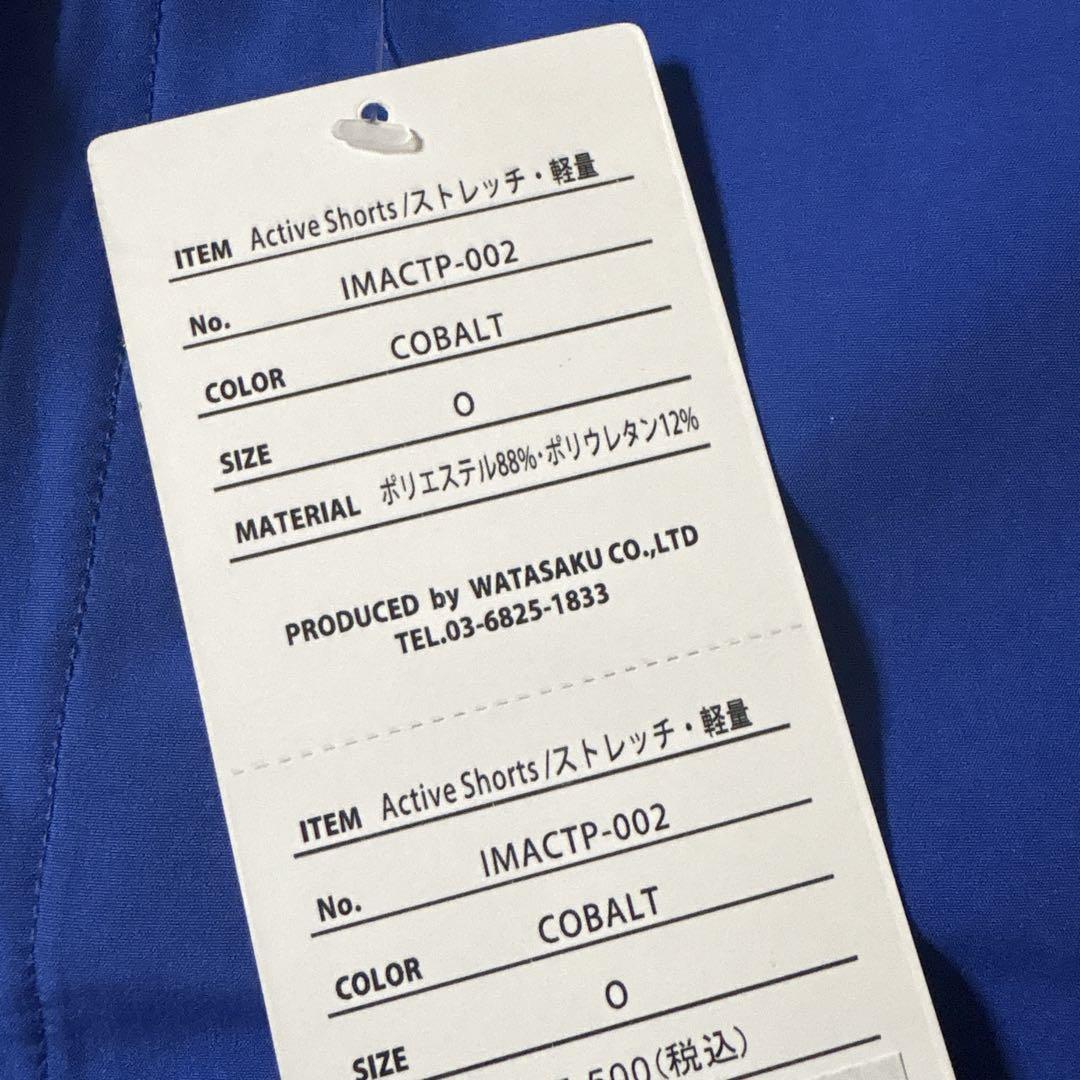 ITEM Active Shorts/ストレッチ・軽量
No. IMACTP-002
COLOR COBALT
SIZE O
MATERIAL ポリエステル88%・ポリウレタン12%
PRODUCED by WATASAKU CO.,LTD
TEL.03-6825-1833
ITEM Active Shorts/ストレッチ・軽量
No. IMACTP-002
COLOR COBALT
SIZE O
500(税込)